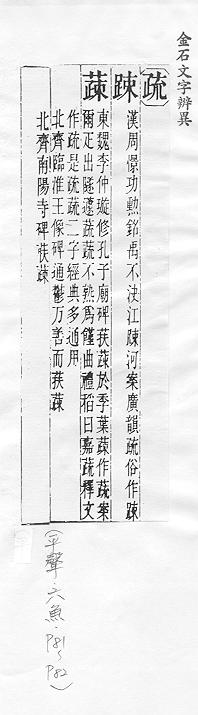 金石文字辨異
疏
踈 漢周憬功勲銘禹不決江踈河案廣韻疏俗作踈
蔬 東魏李仲璇修孔子廟碑扶蔬於季葉蔬作蔬案
爾疋出隧蘧蔬蔬不熟爲饉曲禮稻曰嘉蔬釋文
作疏是疏蔬二字經典多通用
北齊臨淮王像碑通鬱万善而扶蔬
北齊南陽寺碑扶蔬
(平聲.六魚.P81~P82)